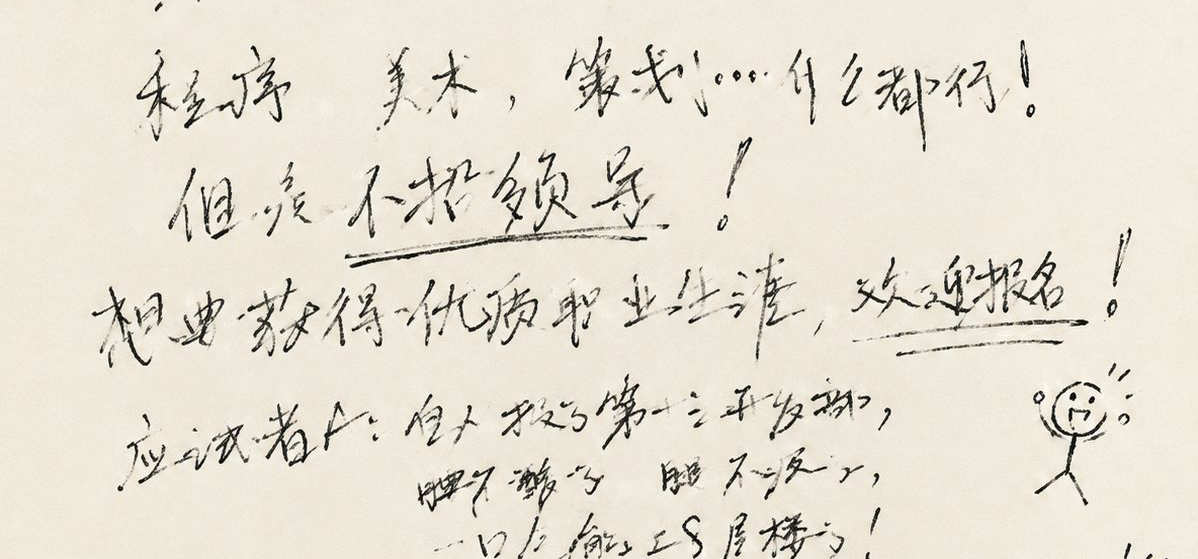 程序 美术，策划…什么都行！
但是不招领导！
想要获得优质职业生涯，欢迎报名！
应试者A：自从报了第十三开发部，
腰不酸了 腿不疼了，
一口气能上8层楼了！